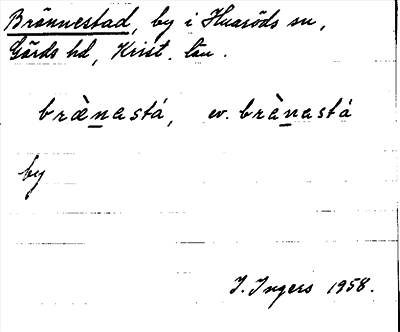 Brönnestad, by i Huaröds sn,
Gärds hd, Krist. län.
bræ̀nastá, ev. brànastá
by
I. Ingers 1958.